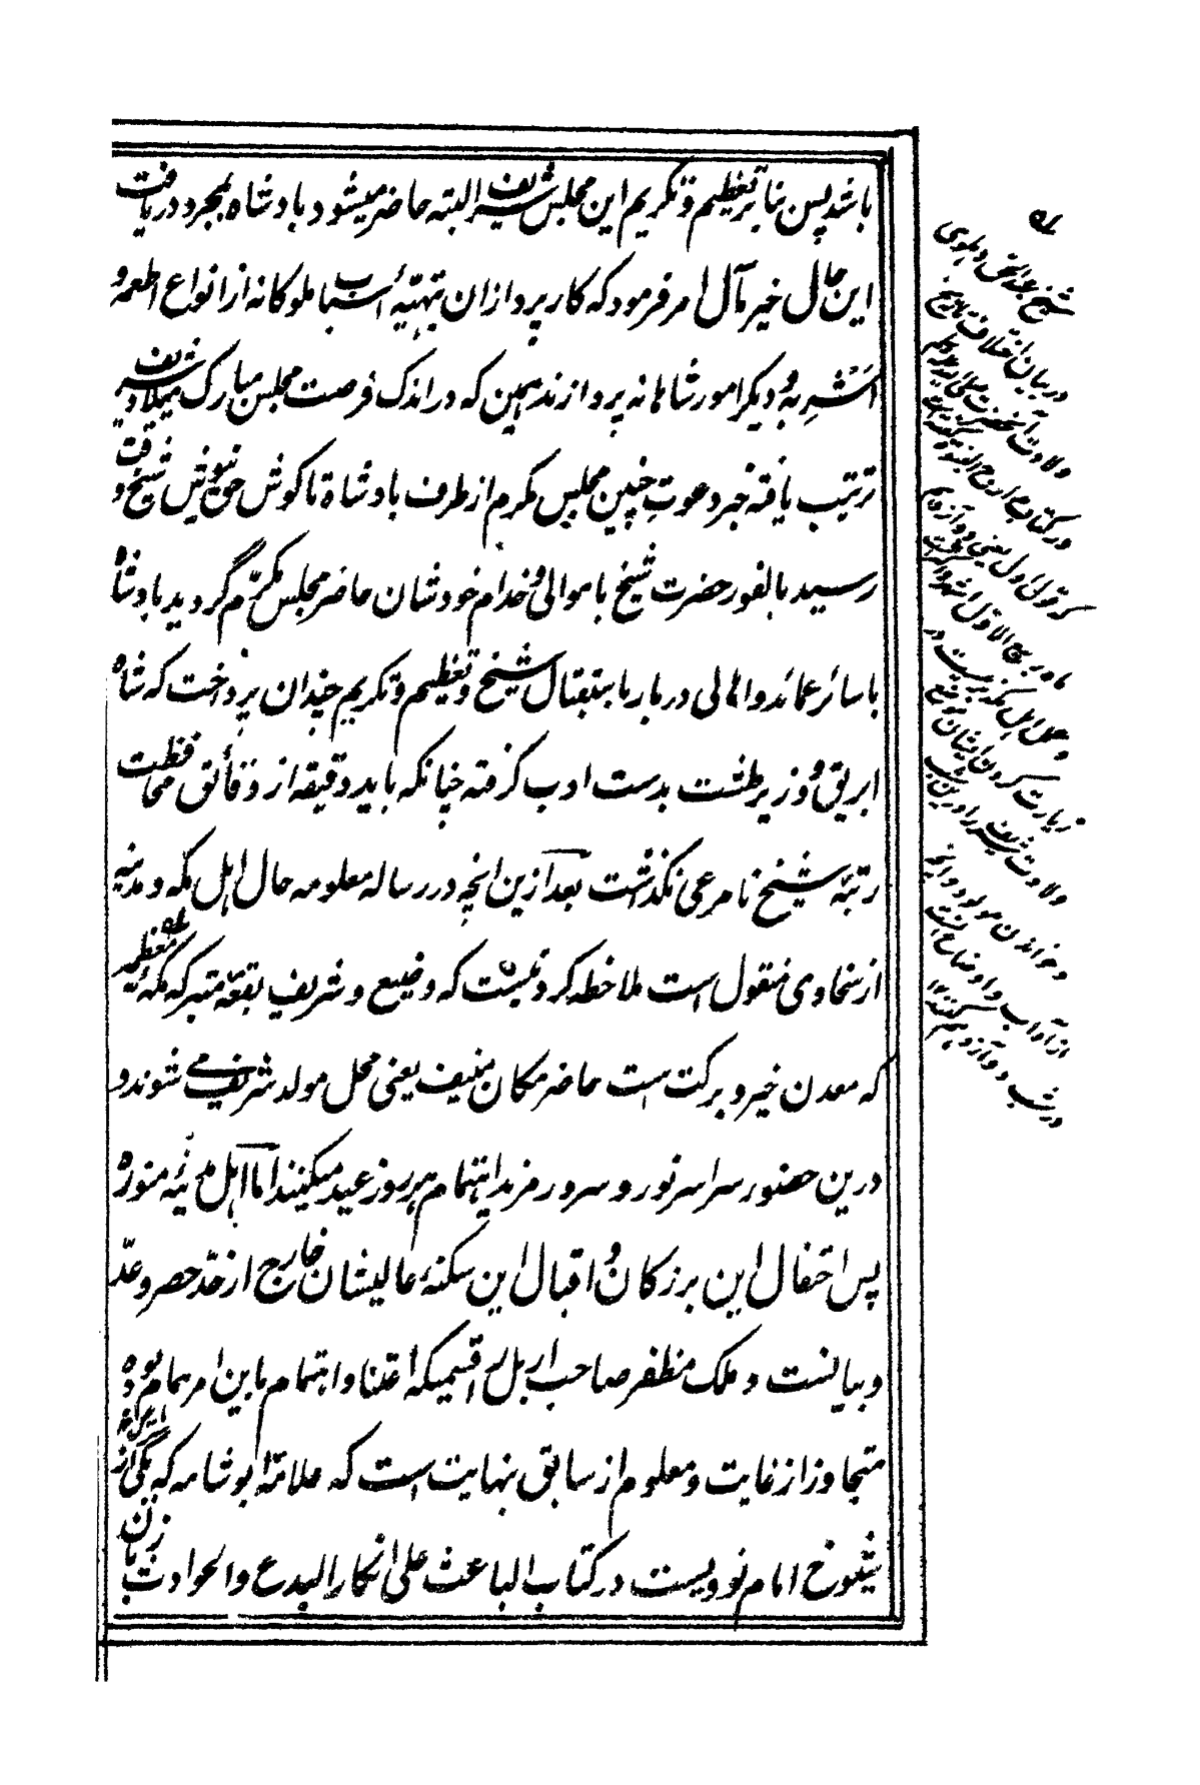 باشد پس بنابر تعظیم و تکریم این مجلس شریف البته حاضر میشود بادشاه بمجرد دریافت
این حال خیر مآل امر فرمود که کار پردازان بتهیّهٔ اسباب ملوکانه از انواع اطعمه و
اشربه و دیگر امور شاهانه پردازند همین که در اندک فرصت مجلس مبارک میلاد شریف
ترتیب یافته خبر دعوت چنین مجلس مکرم از طرف بادشاه تا گوش حق نیوش شیخ وقت
رسید بالفور حضرت شیخ با موالی و خدام خودشان حاضر مجلس مکرّم گردید بادشاه
با سائر عمائد و اهالی دربار باستقبال شیخ و تعظیم و تکریم چندان پرداخت که شاه
ابریق و وزیر طشت بدست ادب گرفته چنانکه باید دقیقه از دقائق محافظت
رتبهٔ شیخ نامرعی نگذاشت بعد ازین انچه در رساله معلومه حال اهل مکه و مدینه
از سخاوی منقول است ملاحظه کردنیست که وضیع و شریف بقعهٔ متبرکه مکهٔ معظمه
که معدن خیر و برکت ست حاضر مکان منیف یعنی محل مولد شریف می شوند و
درین حضور سراسر نور و سرور مزید اهتمام بر روز عید میکنند اما اهل مدینه منوره
پس احتفال این بزرگان و اقبال این سکنهٔ عالیشان خارج از حدّ حصر و عدّ
و بیانست و ملک مظفر صاحب اربل را قسمیکه اعتنا و اهتمام باین امر همام بوده
متجاوز از غایت و معلوم از سابق بنهایت ست که علامهٔ ابوشامه که یکی از
شیوخ امام نوویست در کتاب الباعث علی انکار البدع والحوادث
شیخ عبدالحق دهلوی
در بیان اختلاف تاریخ
ولادت آنحضرت صلی الله علیه وسلم
در کتاب مدارج النبوة
که قول اول یعنی دوازدهم
ماه ربیع الاول اشهر و اکثر است
و عمل اهل مکه برینست در
زیارت کردن ایشان موضع
ولادت شریف را درین شب
و خواندن مولود و آنچه
از آداب و اوضاع آنست
در شب دوازدهم